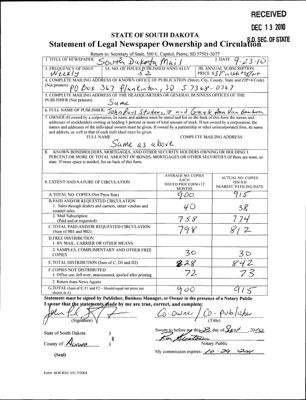 RECEIVED
DEC 13 2010
S.D. SEC. OF STATE
STATE OF SOUTH DAKOTA
Statement of Legal Newspaper Ownership and Circulation
Return to: Secretary of State, 500 E. Capitol, Pierre, SD 57501-5077
1. TITLE OF NEWSPAPER South Dakota Mail
2. DATE 9-23-10
3. FREQUENCY OF ISSUE Weekly
3A. NO. OF ISSUES PUBLISHED ANNUALLY 52
3B. ANNUAL SUBSCRIPTION PRICE
4. COMPLETE MAILING ADDRESS OF KNOWN OFFICE OF PUBLICATION (Street, City, County, State and ZIP+4 Code) (Not printers)
PO Box 367 Plankinton, SD 57368-0367
5. COMPLETE MAILING ADDRESS OF THE HEADQUARTERS OR GENERAL BUSINESS OFFICES OF THE PUBLISHER (Not printer)
Same
6. FULL NAME OF PUBLISHER:
7. OWNER (If owned by a corporation, its name and address must be stated and also the names and addresses of stockholders owning or holding 1 percent or more of total amount of stock. If not owned by a corporation, the names and addresses of the individual owners must be given. If owned by a partnership or other unincorporated firm, its name and address, as well as that of each individual must be given.
FULL NAME COMPLETE MAILING ADDRESS
Same as above
8. KNOWN BONDHOLDERS, MORTGAGEES, AND OTHER SECURITY HOLDERS OWNING OR HOLDING 1 PERCENT OR MORE OF TOTAL AMOUNT OF BONDS, MORTGAGES OR OTHER SECURITIES (If there are none, so state. If more space is needed, list on back of this form.
9. EXTENT AND NATURE OF CIRCULATION
AVERAGE NO. COPIES EACH ISSUED PRECEDING 12 MONTHS
ACTUAL NO. COPIES ISSUED NEAREST TO FILING DATE
A. TOTAL NO. COPIES (Net Press Run) 900 915
B. PAID AND/OR REQUESTED CIRCULATION
1. Sales through dealers and carriers, street vendors and counter sales. 40 38
2. Mail Subscription (Paid and or requested) 758 774
C. TOTAL PAID AND/OR REQUESTED CIRCULATION (Sum of 9B1 and 9B2) 798 812
D. FREE DISTRIBUTION
1. BY MAIL, CARRIER OR OTHER MEANS
2. SAMPLES, COMPLIMENTARY AND OTHER FREE COPIES 30 30
E. TOTAL DISTRIBUTION (Sum of C, D1 and D2) 828 842
F. COPIES NOT DISTRIBUTED
1. Office use, left over, unaccounted, spoiled after printing 72 73
2. Return from News Agents
G. TOTAL (Sum of E, F1 and F2 - Should equal net press run shown in A) 900 915
Statement must be signed by Publisher, Business Manager, or Owner in the presence of a Notary Public
I swear that the statements made by me are true, correct, and complete:
Co-owner / Co-publisher
(Signature) (Title)
State of South Dakota )
County of Aurora )
(Seal)
Sworn to before me this 23 day of Sept
Notary Public
My commission expires: